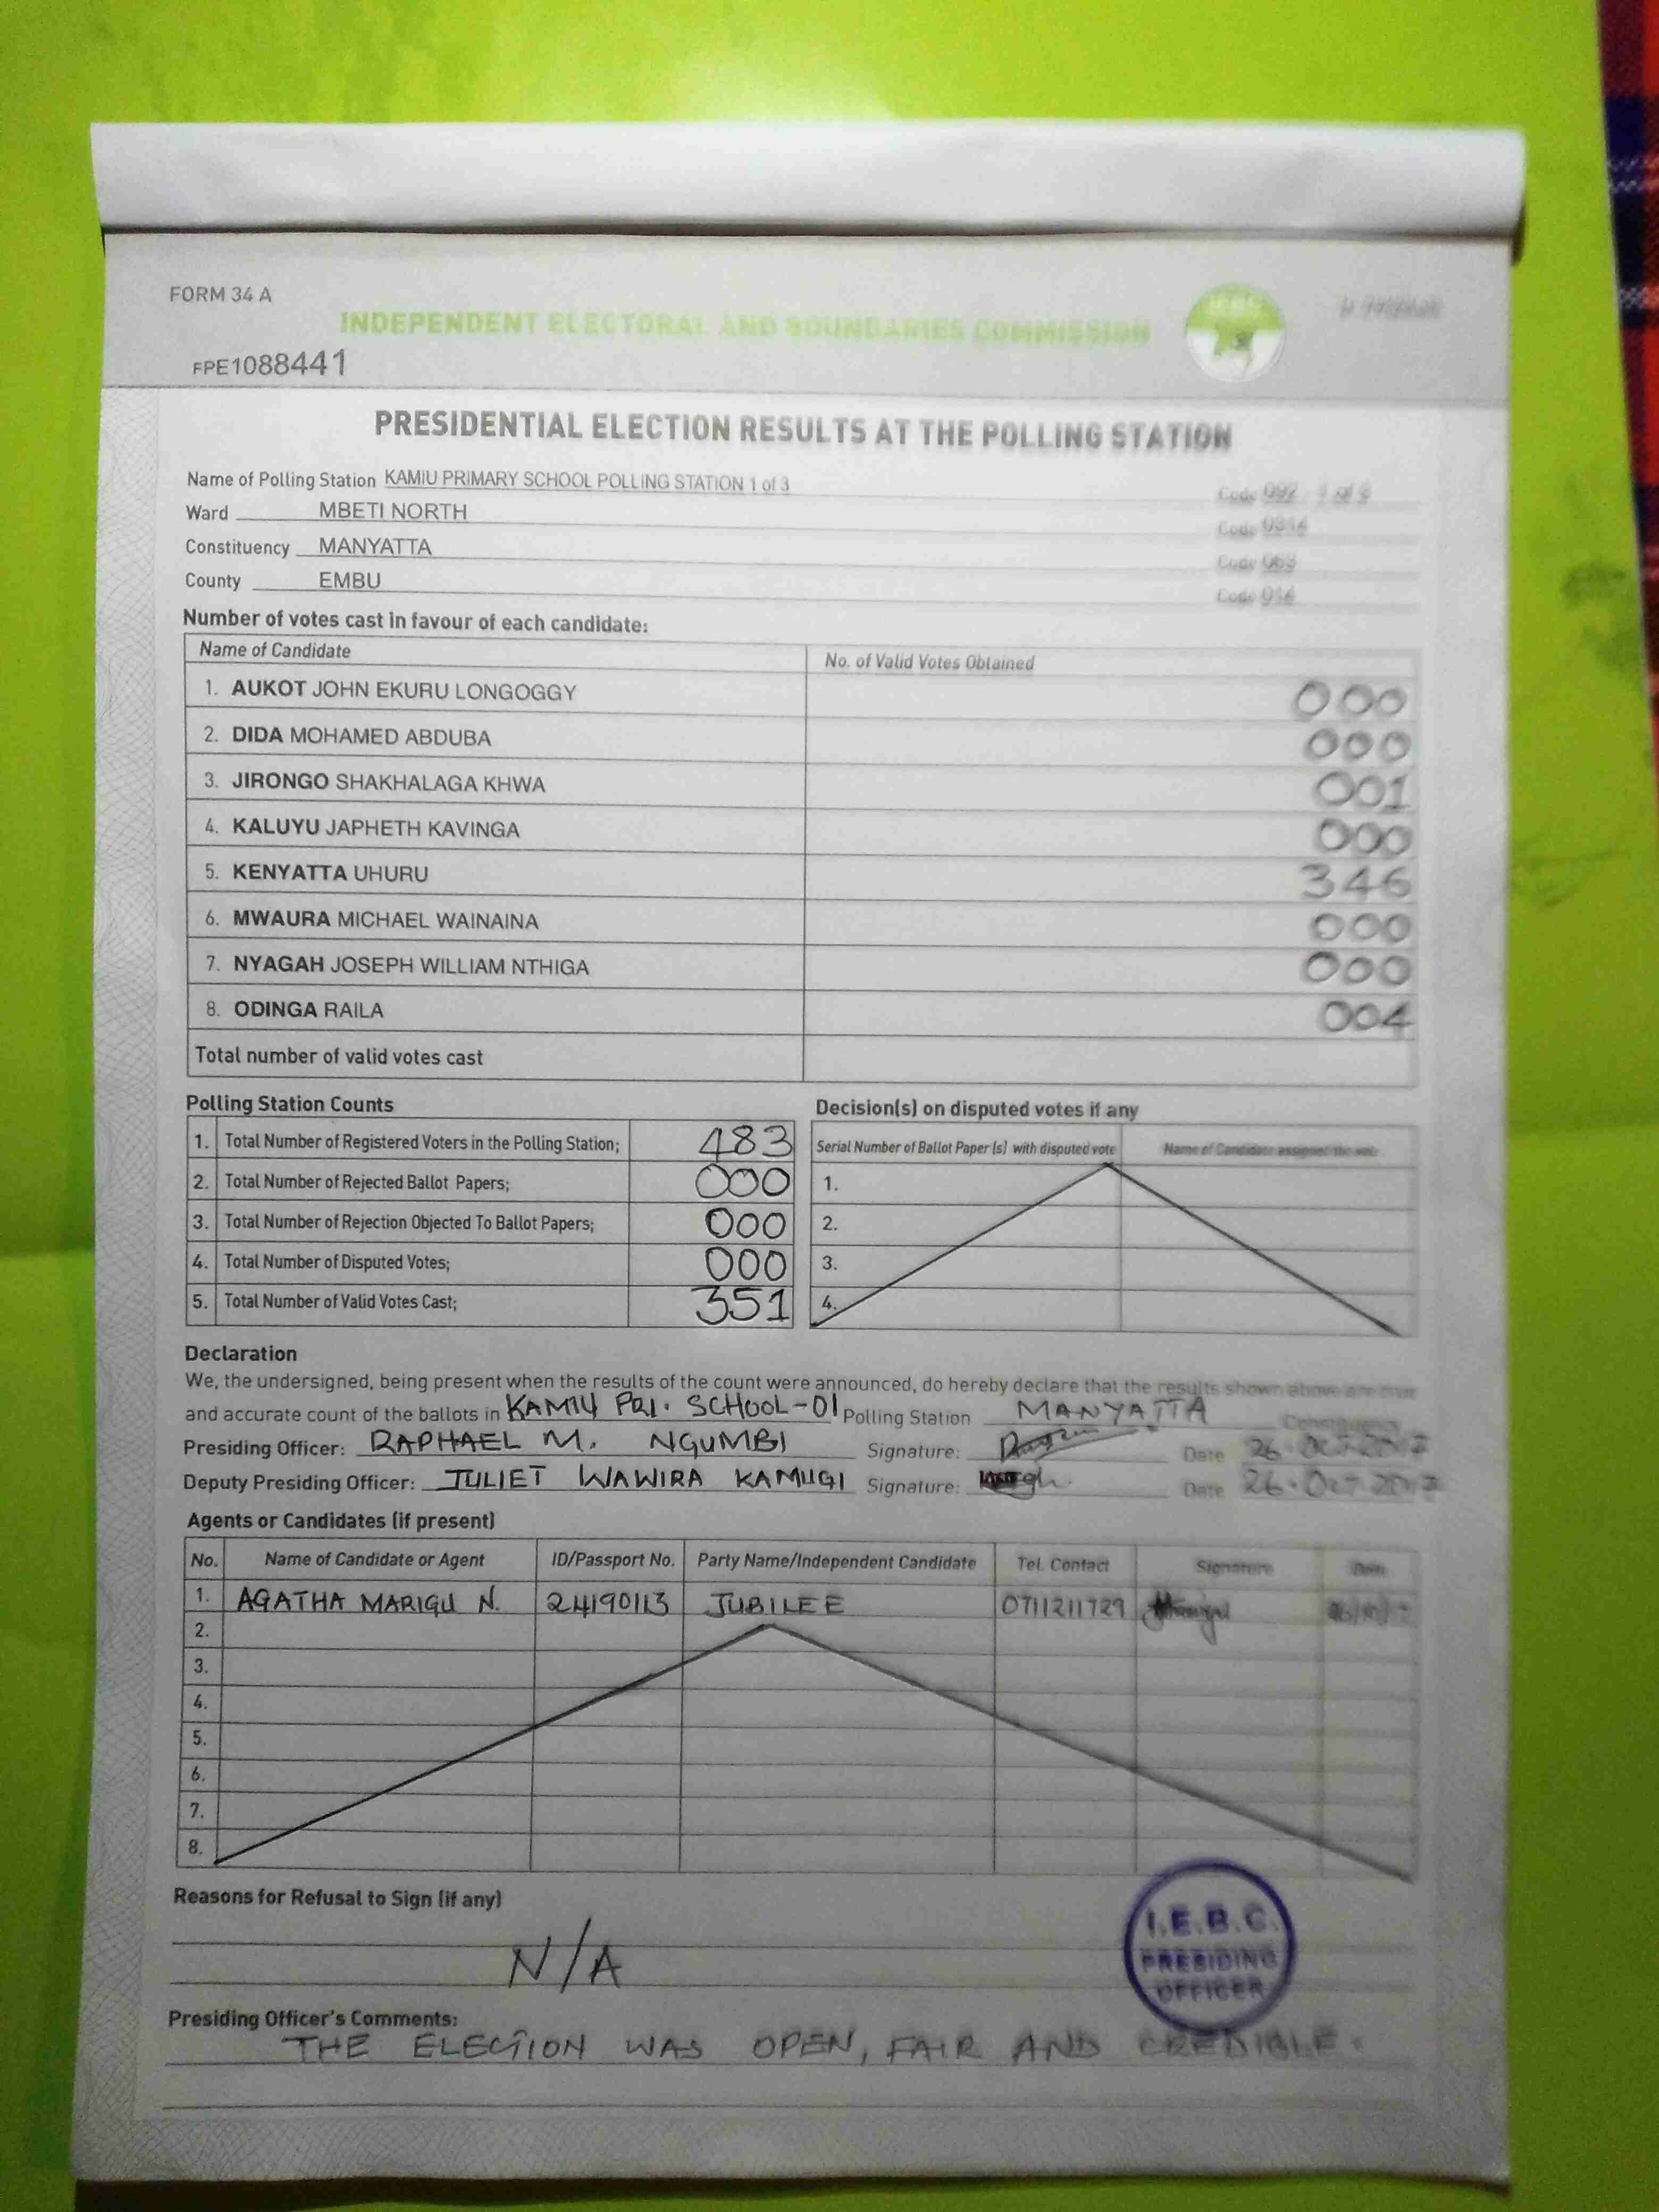 FORM 34 A
INDEPENDENT ELECTORAL AND BOUNDARIES COMMISSION
FPE1088441
PRESIDENTIAL ELECTION RESULTS AT THE POLLING STATION
Name of Polling Station KAMIU PRIMARY SCHOOL POLLING STATION 1 of 3 Code 092 1 of 3
Ward MBETI NORTH Code 0314
Constituency MANYATTA Code 063
County EMBU Code 014
Number of votes cast in favour of each candidate:
Name of Candidate No. of Valid Votes Obtained
1. AUKOT JOHN EKURU LONGOGGY 000
2. DIDA MOHAMED ABDUBA 000
3. JIRONGO SHAKHALAGA KHWA 001
4. KALUYU JAPHETH KAVINGA 000
5. KENYATTA UHURU 346
6. MWAURA MICHAEL WAINAINA 000
7. NYAGAH JOSEPH WILLIAM NTHIGA 000
8. ODINGA RAILA 004
Total number of valid votes cast
Polling Station Counts
1. Total Number of Registered Voters in the Polling Station; 483
2. Total Number of Rejected Ballot Papers; 000
3. Total Number of Rejection Objected To Ballot Papers; 000
4. Total Number of Disputed Votes; 000
5. Total Number of Valid Votes Cast; 351
Decision(s) on disputed votes if any
Serial Number of Ballot Paper (s) with disputed vote Name of Candidate assigned the vote
1.
2.
3.
4.
Declaration
We, the undersigned, being present when the results of the count were announced, do hereby declare that the results shown above are true
and accurate count of the ballots in KAMIU PRI. SCHOOL-01 Polling Station MANYATTA Constituency
Presiding Officer: RAPHAEL M. NGUMBI Signature: Date 26.OCT.2017
Deputy Presiding Officer: JULIET WAWIRA KAMUGI Signature: Date 26.OCT.2017
Agents or Candidates (if present)
No. Name of Candidate or Agent ID/Passport No. Party Name/Independent Candidate Tel. Contact Signature Date
1. AGATHA MARIGU N. 24190113 JUBILEE 0711211729
2.
3.
4.
5.
6.
7.
8.
Reasons for Refusal to Sign (if any)
N/A
I.E.B.C.
PRESIDING
OFFICER
Presiding Officer's Comments:
THE ELECTION WAS OPEN, FAIR AND CREDIBLE.